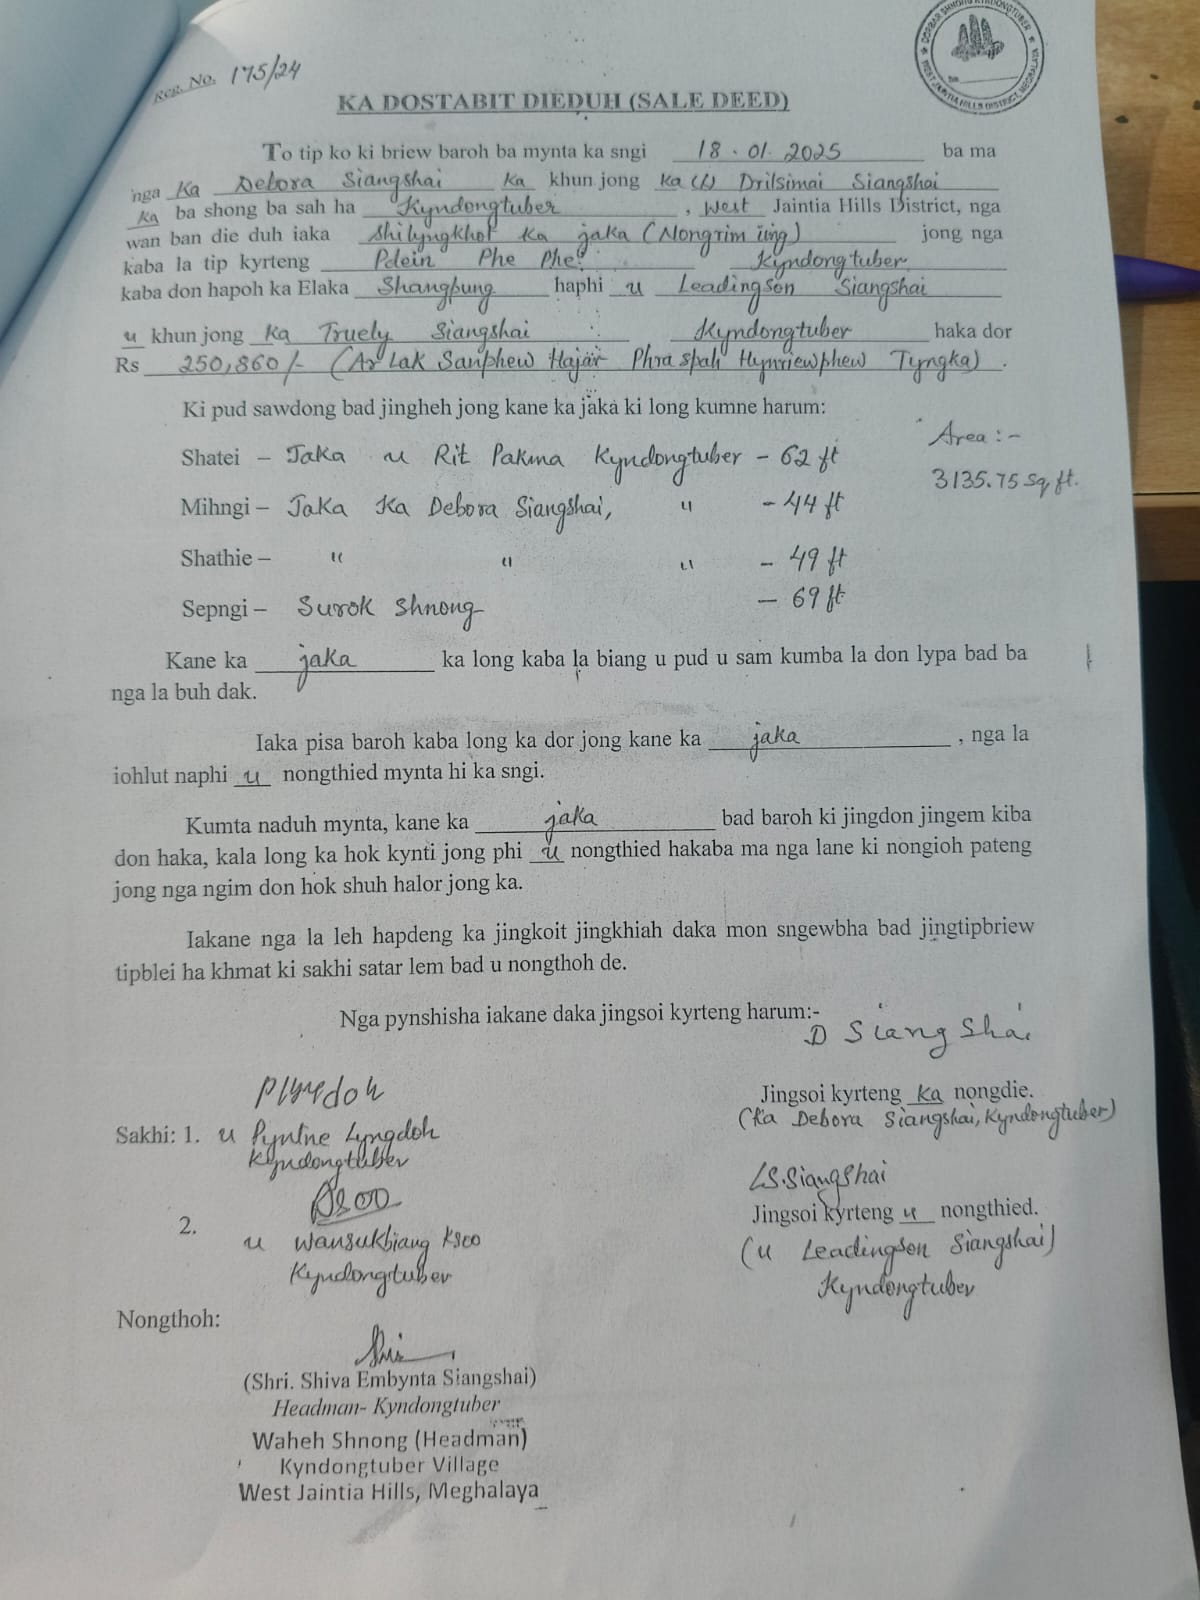 Reg. No. 175/24
DORBAR SHNONG KYNDONGTUBER
WEST JAINTIA HILLS DISTRICT, MEGHALAYA
KA DOSTABIT DIEDUH (SALE DEED)
To tip ko ki briew baroh ba mynta ka sngi 18.01.2025 ba ma
nga Ka Debora Siangshai Ka khun jong Ka (L) Drilsimai Siangshai
Ka ba shong ba sah ha Kyndongtuber, West Jaintia Hills District, nga
wan ban die duh iaka shilyngkhot ka jaka (Nongrim iing) jong nga
kaba la tip kyrteng Pdein Phe Phe Kyndongtuber
kaba don hapoh ka Elaka Shangpung haphi u Leadingson Siangshai
u khun jong Ka Truely Siangshai Kyndongtuber haka dor
Rs 250,860/- (Ar Lak Sanphew Hajar Phra spah Hynriewphew Tyngka).
Ki pud sawdong bad jingheh jong kane ka jaka ki long kumne harum:
Area :-
3135.75 Sq ft.
Shatei – Jaka u Rit Pakma Kyndongtuber - 62 ft
Mihngi – Jaka Ka Debora Siangshai, " - 44 ft
Shathie – " " " - 49 ft
Sepngi – Surok Shnong - 69 ft
Kane ka jaka ka long kaba la biang u pud u sam kumba la don lypa bad ba
nga la buh dak.
Iaka pisa baroh kaba long ka dor jong kane ka jaka, nga la
iohlut naphi u nongthied mynta hi ka sngi.
Kumta naduh mynta, kane ka jaka bad baroh ki jingdon jingem kiba
don haka, kala long ka hok kynti jong phi u nongthied hakaba ma nga lane ki nongioh pateng
jong nga ngim don hok shuh halor jong ka.
Iakane nga la leh hapdeng ka jingkoit jingkhiah daka mon sngewbha bad jingtipbriew
tipblei ha khmat ki sakhi satar lem bad u nongthoh de.
Nga pynshisha iakane daka jingsoi kyrteng harum:-
D Siangshai
Jingsoi kyrteng Ka nongdie.
(Ka Debora Siangshai, Kyndongtuber)
Plyngdoh
Sakhi: 1. u Pyntne Lyngdoh
Kyndongtuber
L S. Siangshai
Jingsoi kyrteng u nongthied.
(u Leadingson Siangshai)
Kyndongtuber
2.
u Wansukbiang Ksoo
Kyndongtuber
Nongthoh:
(Shri. Shiva Embynta Siangshai)
Headman- Kyndongtuber
Waheh Shnong (Headman)
Kyndongtuber Village
West Jaintia Hills, Meghalaya